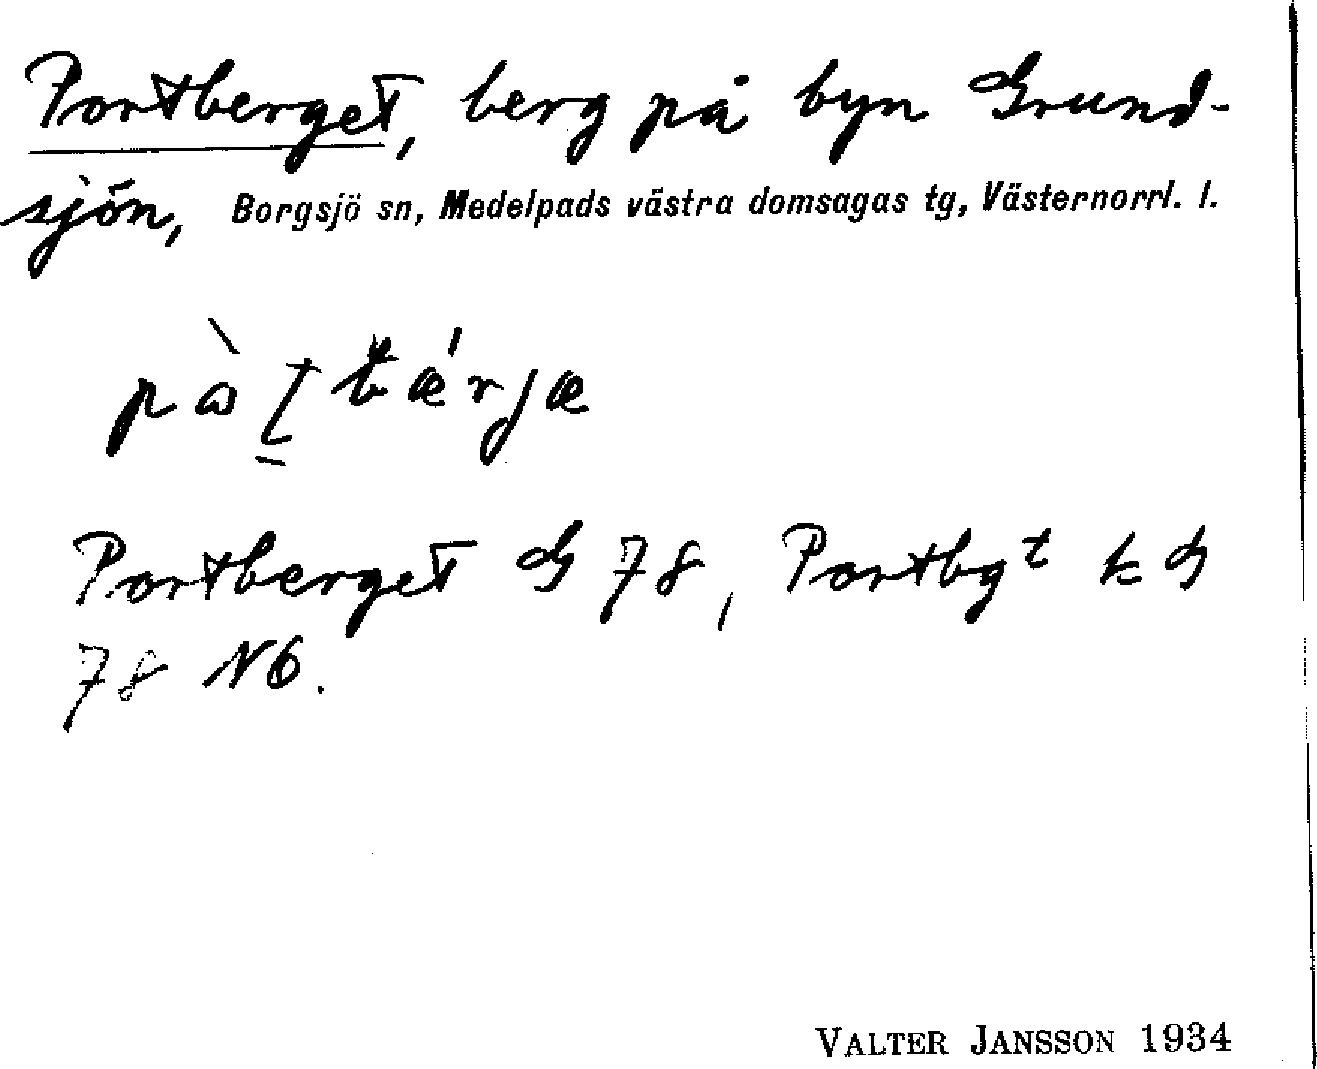 Portberget, berg på byn Grund-
sjön, Borgsjö sn, Medelpads västra domsagas tg, Västernorrl. l.
Portberget G 78, Portbgt k G
78 NO.
VALTER JANSSON 1934